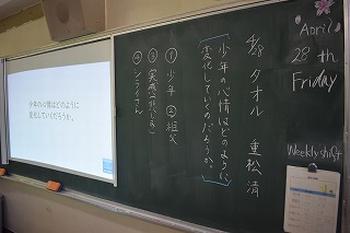 4/28 タオル 重松清
少年の心情はどのように
変化していくのだろうか。
① 少年 ② 祖父
④ シライさん
少年の心情はどのように
変化していくだろうか。
April
28 th
Friday
Weekly shift